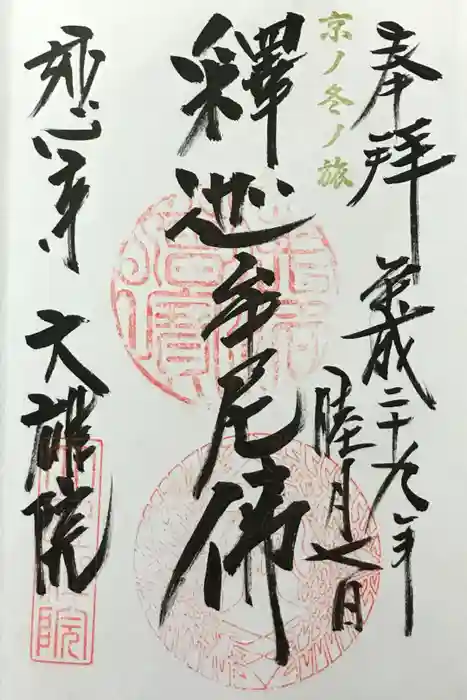 奉拝
平成二十九年
睦月七日
京ノ冬ノ旅
釋迦牟尼佛
妙心寺 大雄院